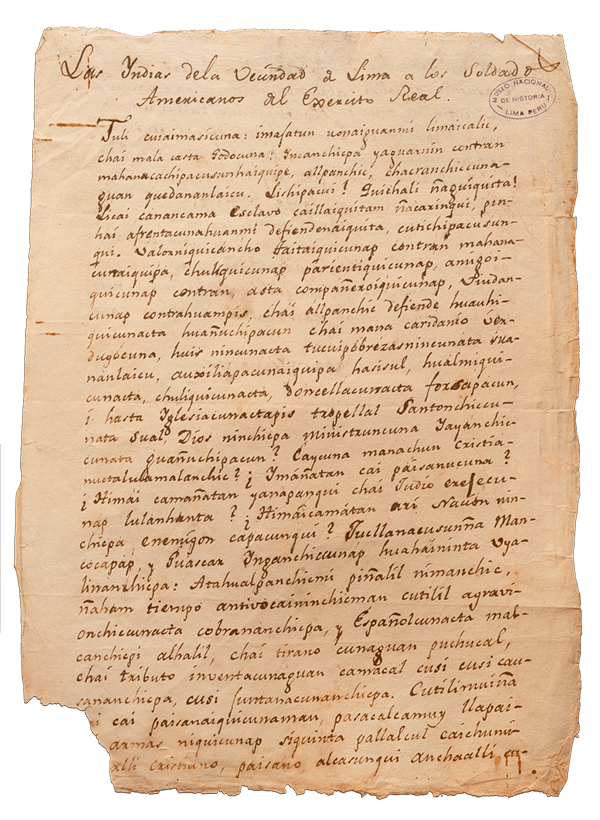 Las Yndias dela Vecindad de Lima a los Soldados
Americanos del Exercito Real.
MUSEO NACIONAL
DE HISTORIA
LIMA PERU
Tuli cuiaimasicuna: imasatun uonaiguanmi limaicalic,
chai mala casta Godocuna: Incanchicpa yaguarnin contran
mahanacachipacusunhaiquipe, allpanchic, chacranchiccuna-
guan quedananlaicu. Lichipacui! Guichali ñaguiquita!
Licai canancama Esclavo caillaiquitam ñacaringui, pin-
hai afrentacunahuanmi defiendenaiquita, cutichipacusun-
qui. Valorniquicancho Taitaiquicunap contran mahana-
cunaiquipa, chulliquicunap parientiquicunap, amigoi-
quicunap contran, asta compañeroiquicunap, Viudan-
cunap contrahuampis, chai allpanchic defiende huauhi-
quicunacta huañuchipacun chai mana caridanio Ver-
dugocuna, huis nincunacta tucuipobrezasnincunata sua-
nanlaicu, auxiliapacunaiquipa hasisul, hualmiqui-
cunacta, chuliquicunacta, Doncellacunacta forsapacun,
i hasta Yglesiacunactapis tropellal Santonchiccu-
nata Sual, Dios ninchicpa ministruncuna Tayanchic-
cunata guañuchipacun? Caycuna manachun Cristia-
nuctalulamalanchic? ¿ Imañatan cai paisanucuna?
¿ Himai camañatan yanapanqui chai Judio erejecu-
nap lulanhanta? ¿ Himaicamatan ari Nacion nin-
chicpa enemigon capacunqui? Tucllanacusunña Man-
cocapap, y Guascar Ynganchiccunap huahaininta Uya-
linanchicpa: Atahualpanchicmi piñalil nimanchic,
ñaham tiempo antivocaininchicman cutilil agravi-
onchiccunacta cobrananchicpa, y Españolcunacta mal-
canchicpi alhalil, chai tirano cunaguan puchucal,
chai tributo inventacunaguan camacal cusi cusi cau-
sananchicpa, cusi suntanacunanchicpa. Cutilimuiña
cai paisanaiquicunaman, pasacalcamuy llapai-
armas niquicunap siquinta pallalcul caichuni-
cristiano, paisano, alcasunqui anchaalli cu-